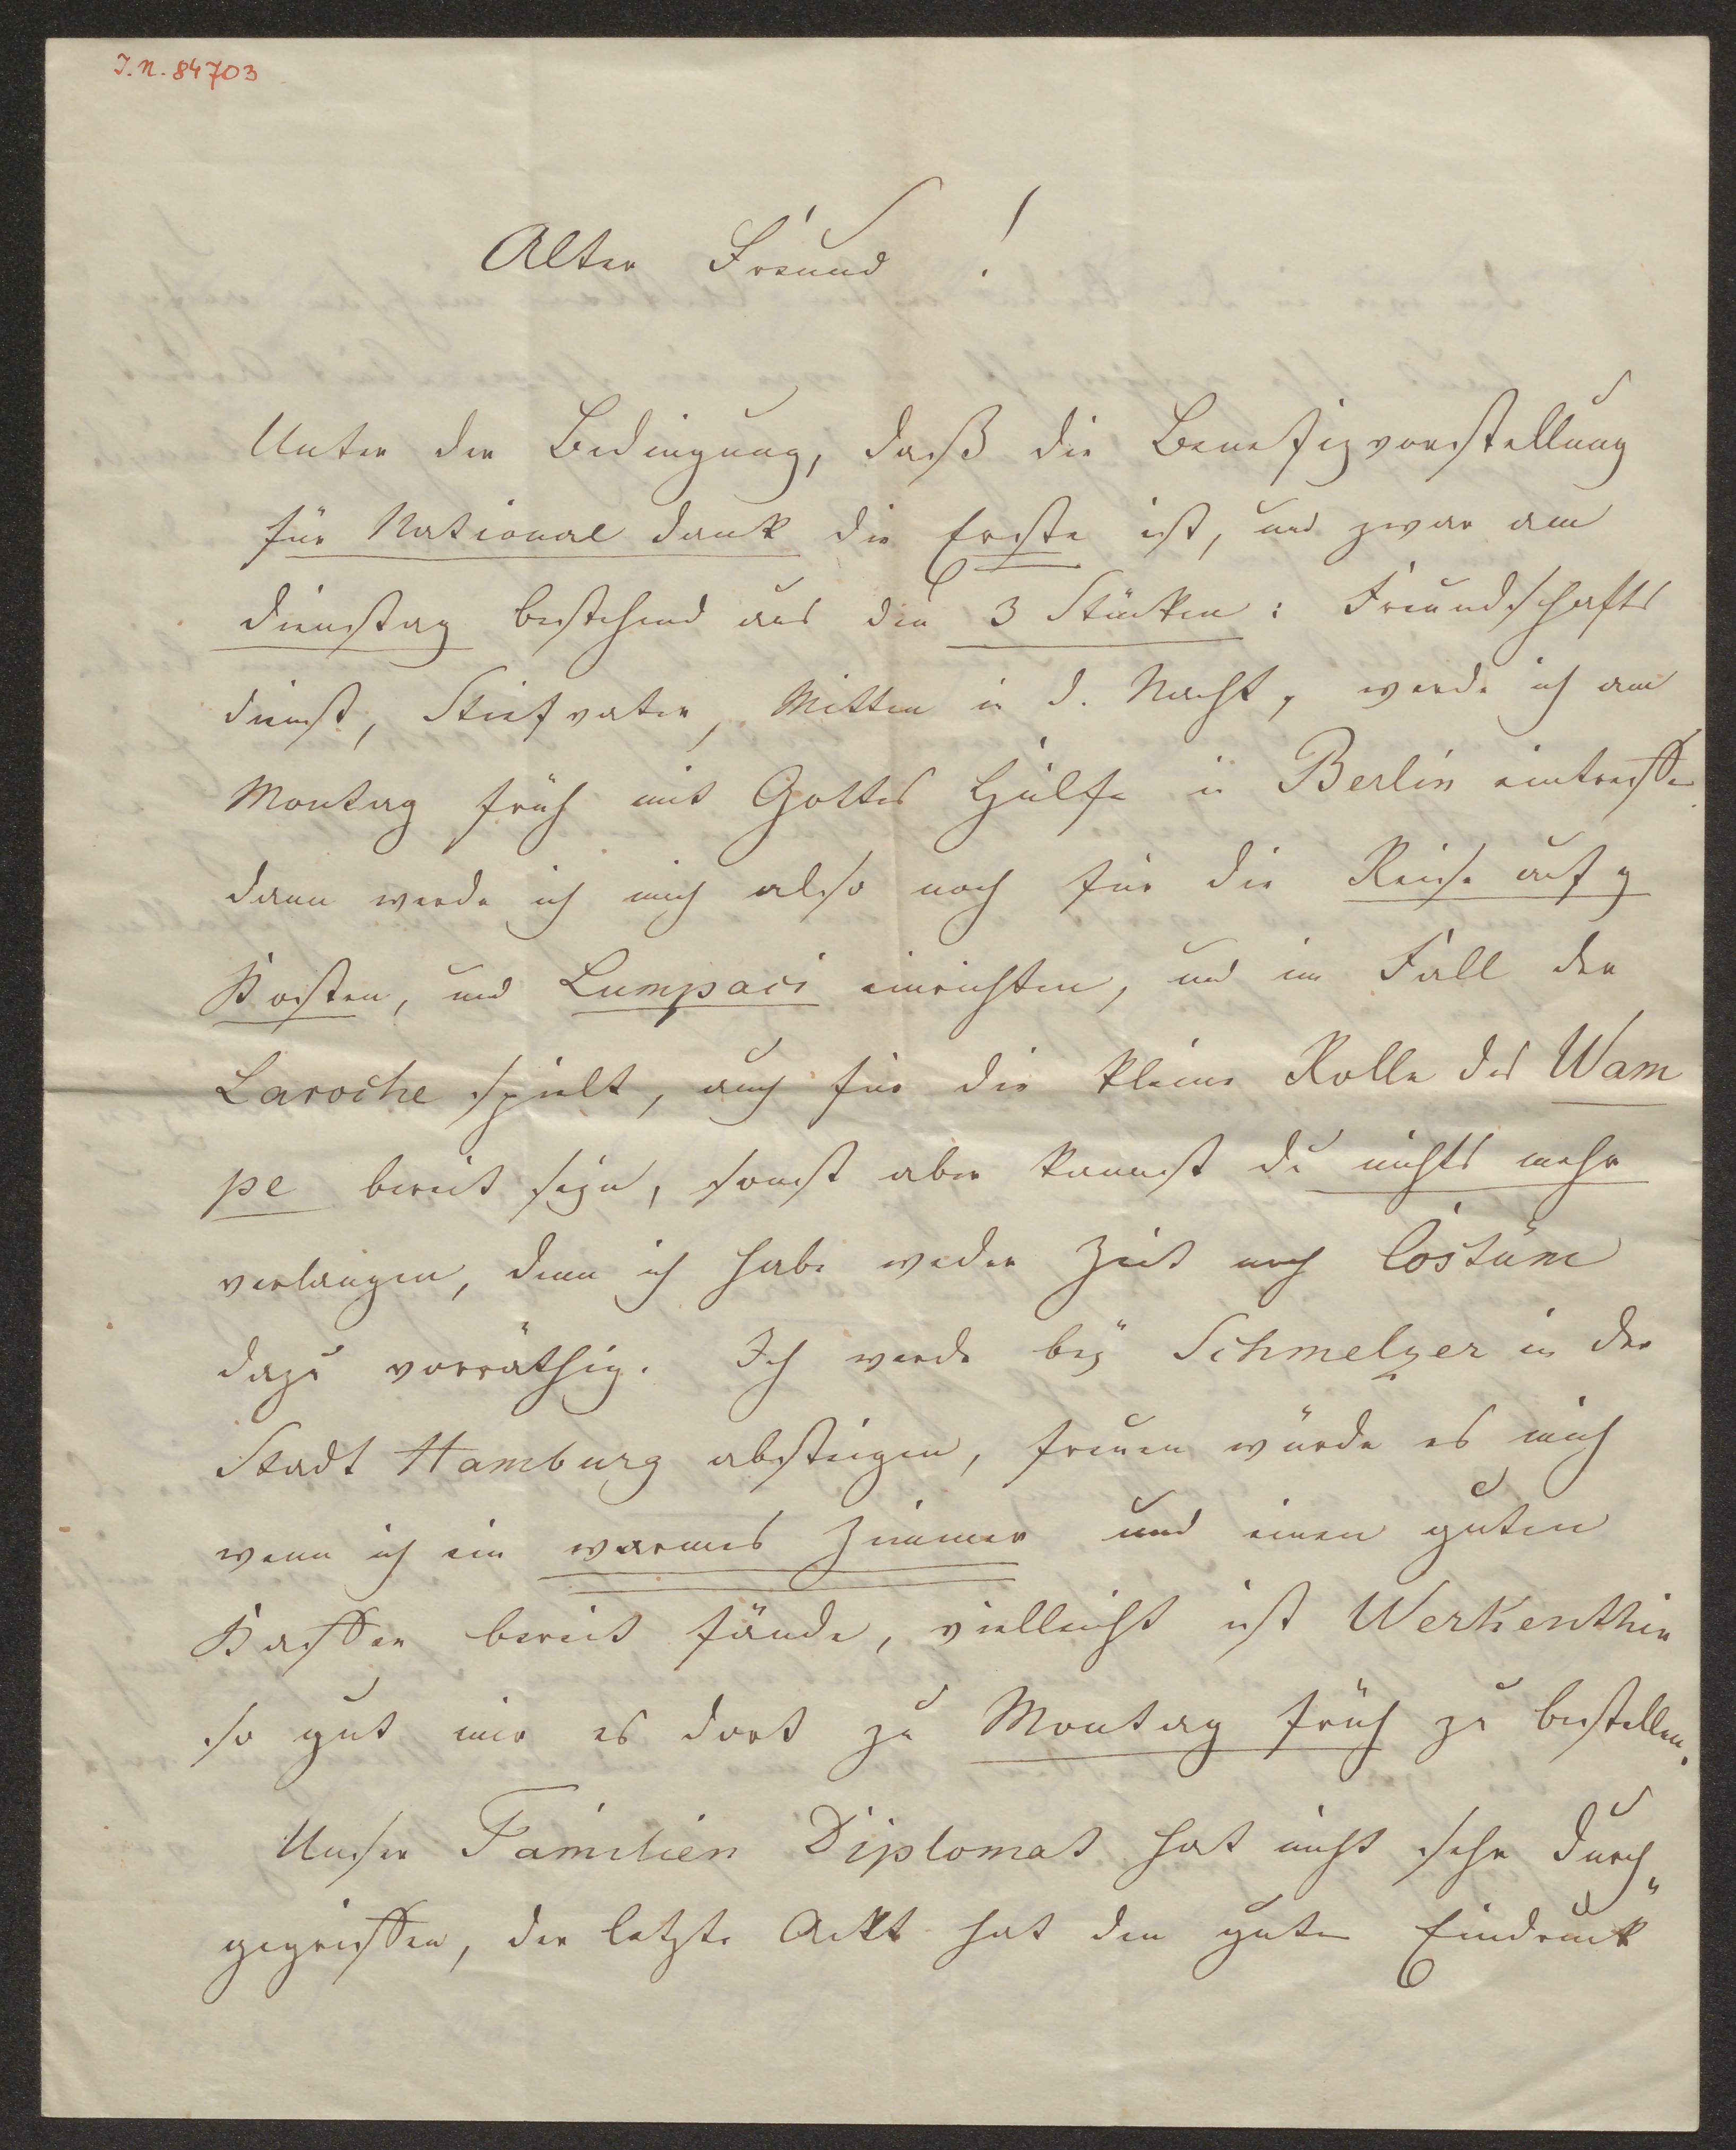 I. N. 84703
Alter Freund!
Unter der Bedingung, daß die Benefizvorstellung
für National dank die Erste ist, und zwar am
Dienstag bestehend aus den 3 Stücken: Freundschafts
dienst, Stiefvater, Mitten in d. Nacht, werde ich am
Montag früh mit Gottes Hülfe in Berlin eintreffen
dann werde ich mich also noch für die Reise auf g
Kosten, und Lumpaci einrichten, und im Fall der
Laroche spielt, auch für die kleine Rolle des Wam
pe bereit seyn, sonst aber kannst du nichts mehr
verlangen, denn ich habe weder Zeit noch Costüme
dazu vorräthig. Ich werde beÿ Schmelzer in der
Stadt Hamburg absteigen, freuen würde es mich
wenn ich ein warmes Zimmer und einen guten
Kaffee bereit fände, vielleicht ist Werkenthin
so gut mir es dort zu Montag früh zu bestellen.
Unser Familien Diplomat hat nicht sehr durch„
gegriffen, der letzte Ackt hat den guten Eindruck